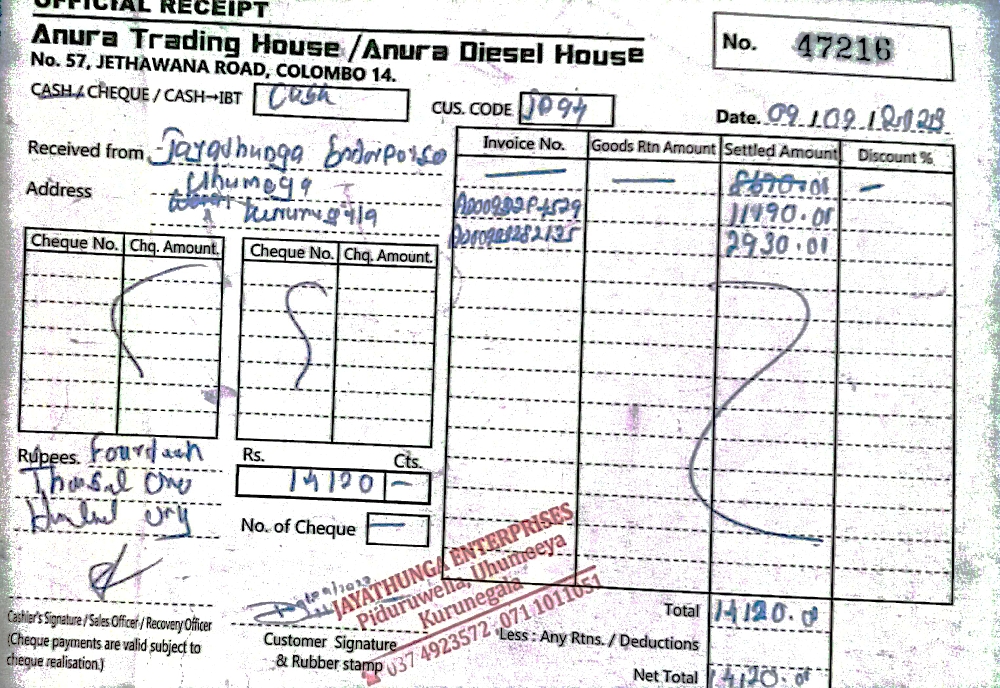 OFFICIAL RECEIPT
Anura Trading House /Anura Diesel House
No. 57, JETHAWANA ROAD, COLOMBO 14.
No. 47216
CASH / CHEQUE / CASH→IBT Cash
CUS. CODE
Date. 09 / 09 /
Received from
Address Uhumeeya
Kurunegala
Invoice No. Goods Rtn Amount Settled Amount Discount %
11490.00
2930.00
Cheque No. Chq. Amount. Cheque No. Chq. Amount.
Rupees. Fourteen
Rs. Cts.
14120 —
No. of Cheque —
JAYATHUNGA ENTERPRISES
Piduruwella, Uhumeeya
Kurunegala
037 4923572 071 1011051
Cashier's Signature / Sales Officer / Recovery Officer
(Cheque payments are valid subject to
cheque realisation.)
Customer Signature
& Rubber stamp
Total 14120.00
Less : Any Rtns. / Deductions
Net Total 14120.00